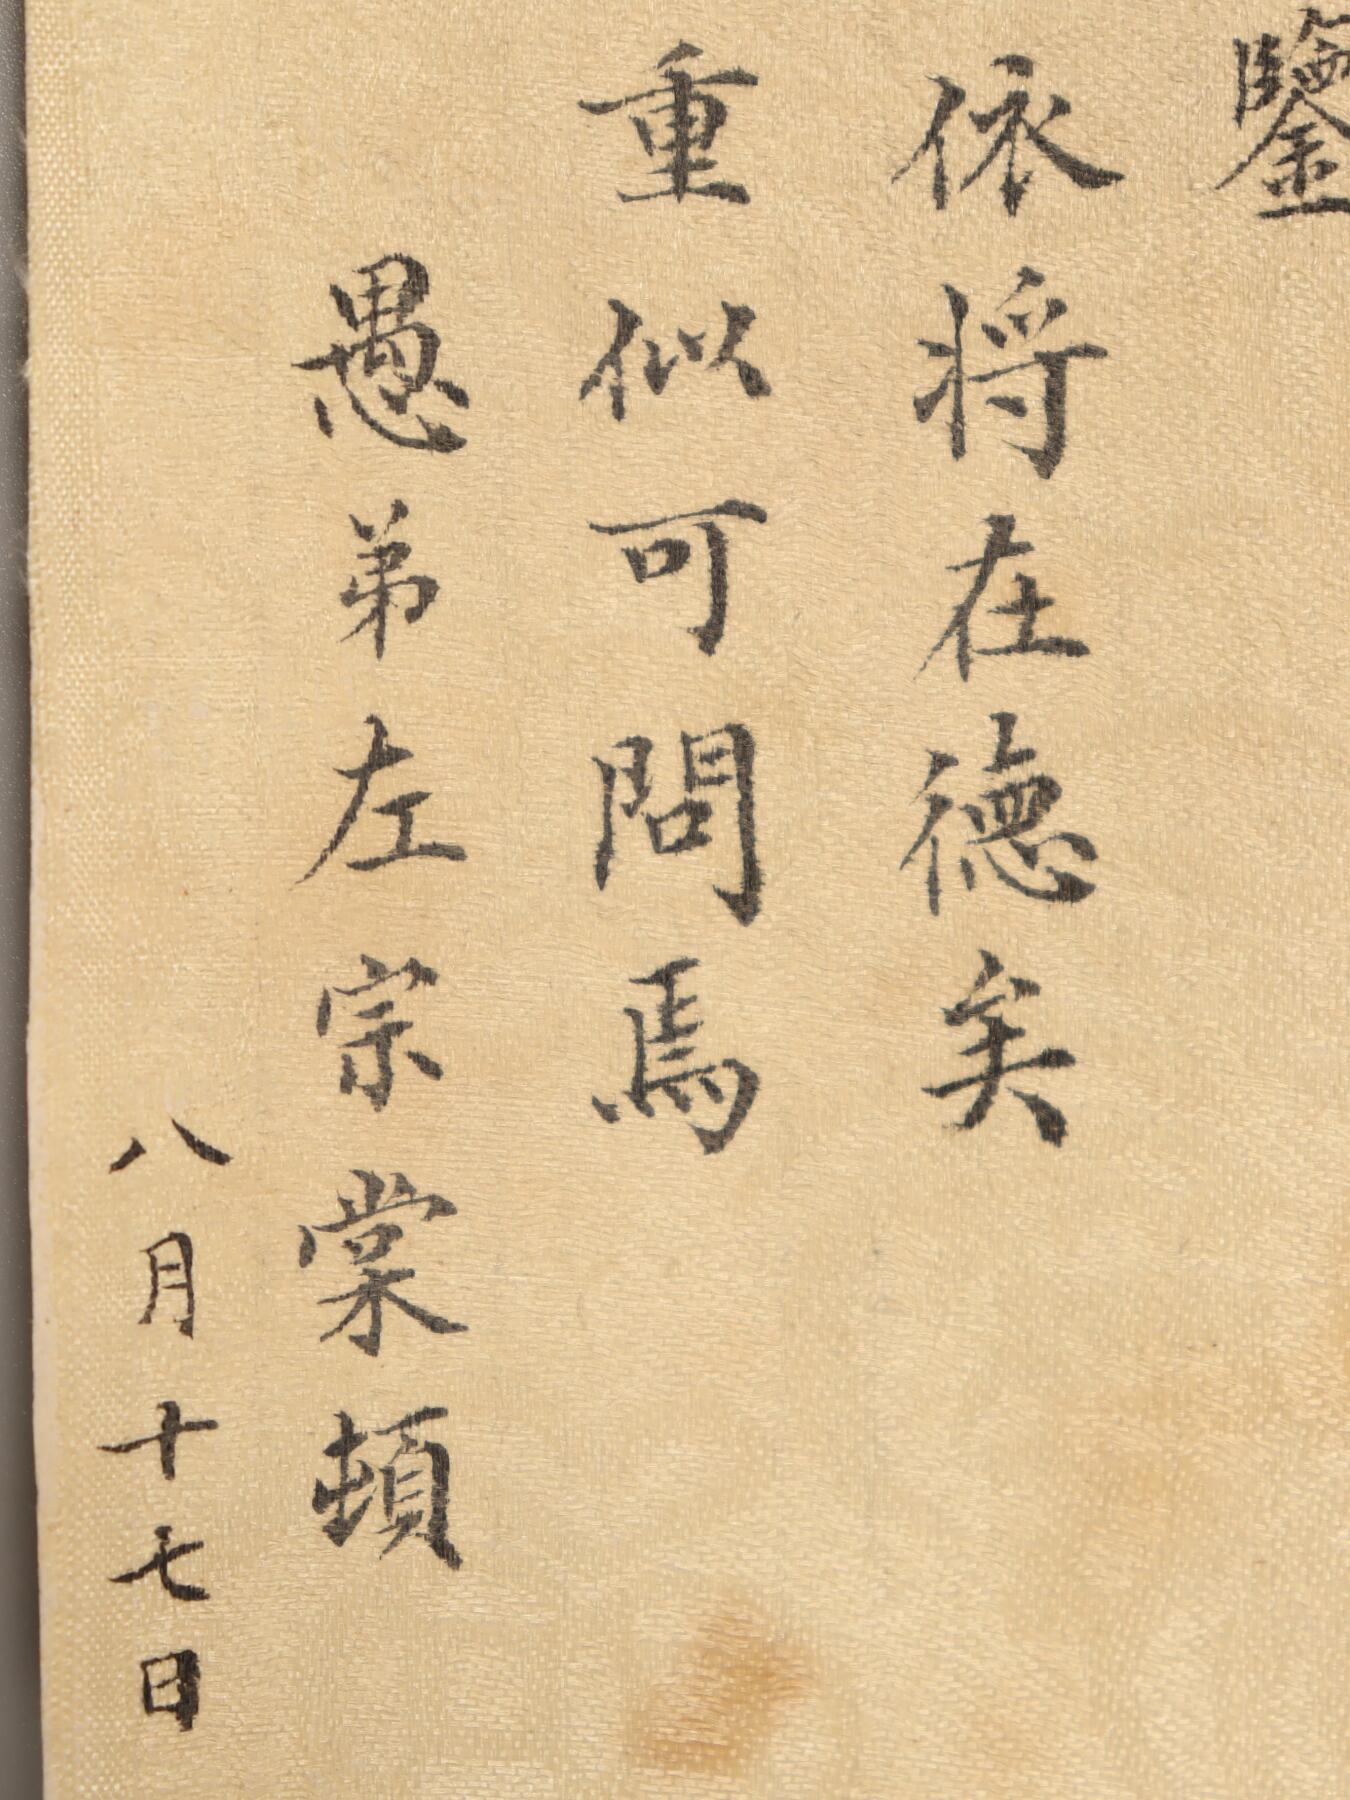 鑒
依将在德矣
重似可問焉
愚弟左宗棠頓
八月十七日